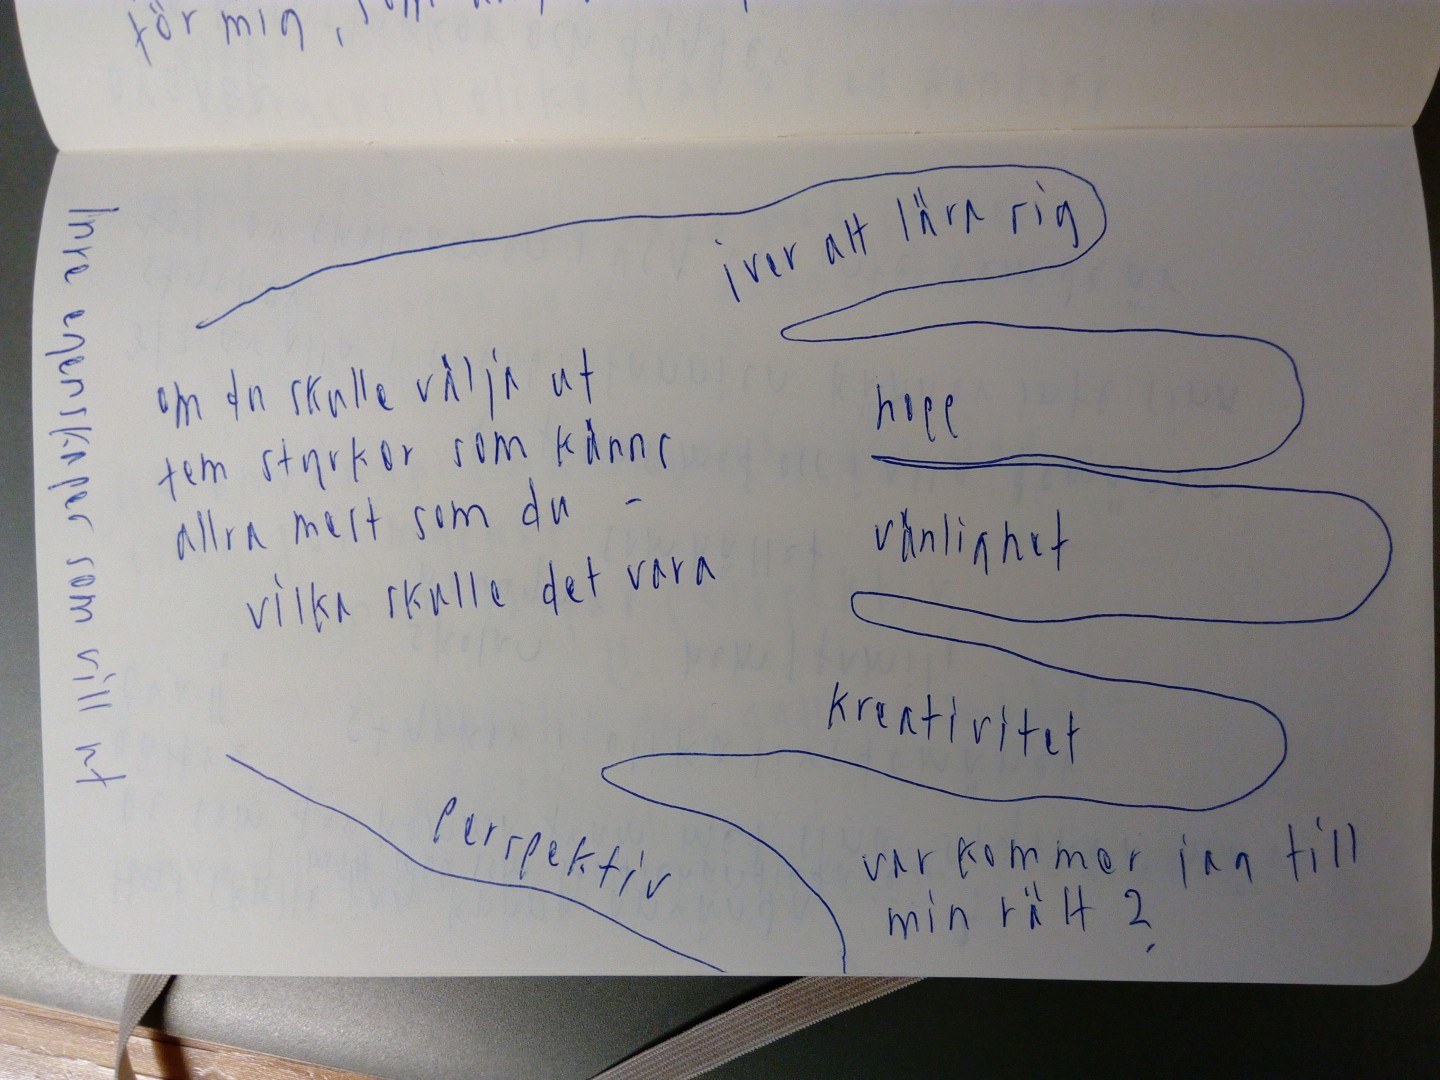 för mig, som
Inre egenskaper som vill ut
iver att lära sig
om du skulle välja ut
fem styrkor som känns
allra mest som du -
vilka skulle det vara
hopp
vänlighet
kreativitet
Perspektiv
var kommer jag till
min rätt?